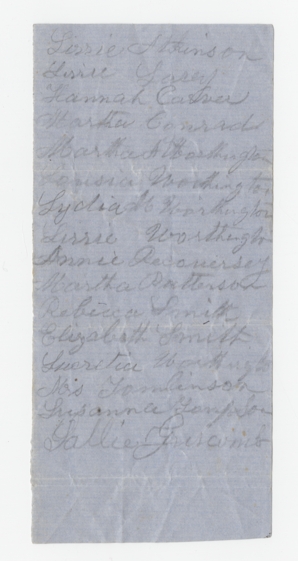 Lizzie Atkinson
Lizzie
Hannah Carver
Martha Conrad
Martha Worthington
Louisia Worthington
Lydia W Worthington
Lizzie Worthington
Annie
Martha Patterson
Rebecca Smith
Elizabeth Smith
Worthingto
Tomlinson
Susanna
Sallie